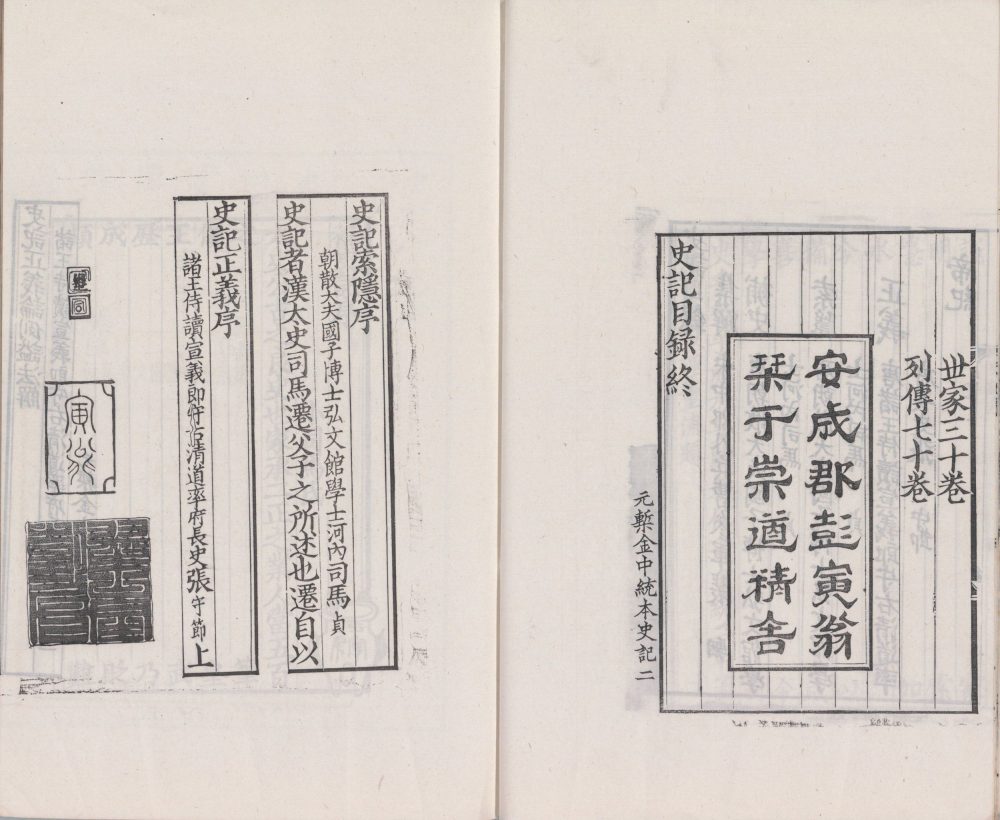 世家三十卷
列傳七十卷
安成郡彭寅翁
栞于崇道精舍
史記目録終
元槧金中統本史記二
史記索隱序
朝散大夫國子博士弘文館學士河內司馬貞
史記者漢太史司馬遷父子之所述也遷自以
史記正義序
諸王侍讀宣義郎守右清道率府長史張守節上
寅翁